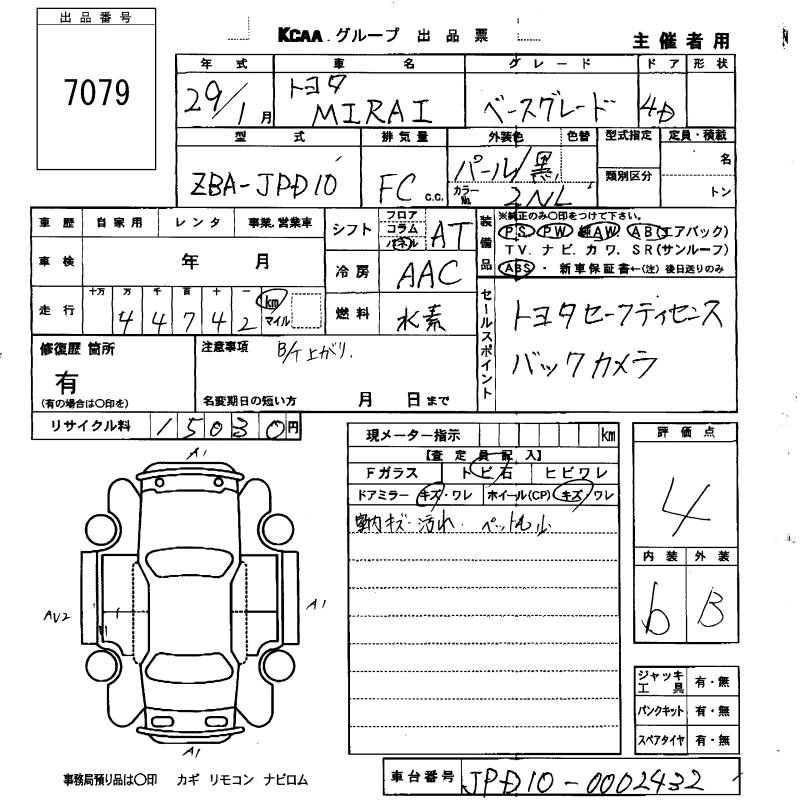 出品番号
7079
KCAA グループ 出品票
主催者用
年式 車名 グレード ドア 形状
29/1月 トヨタ MIRAI ベースグレード 4D
型式 排気量 外装色 色替 型式指定 定員・積載
ZBA-JPD10 FC c.c. パール/黒 カラーNo. 2NL 類別区分 名 トン
車歴 自家用 レンタ 事業.営業車
車検 年 月
走行 十万 万 千 百 十 一
4 4 7 4 2 km マイル
シフト フロア コラム パネル AT
冷房 AAC
燃料 水素
装備品 ※純正のみ〇印をつけて下さい。
PS PW AW AB(エアバック)
TV. ナビ. カワ. SR(サンルーフ)
ABS ・ 新車保証書←(注) 後日送りのみ
セールスポイント
トヨタセーフティセンス
バックカメラ
修復歴 箇所
有
(有の場合は〇印を)
注意事項 B/T上がり.
名変期日の短い方 月 日まで
リサイクル料 15030円
現メーター指示 km
【査定員記入】
Fガラス トビ石 ヒビワレ
ドアミラー キズ・ワレ ホイール(CP) キズ/ワレ
室内キズ・汚れ. ペット毛少
評価点
4
内装 外装
b B
A1
AV2
A1
A1
ジャッキ工具 有・無
パンクキット 有・無
スペアタイヤ 有・無
事務局預り品は〇印 カギ リモコン ナビロム
車台番号 JPD10-0002432